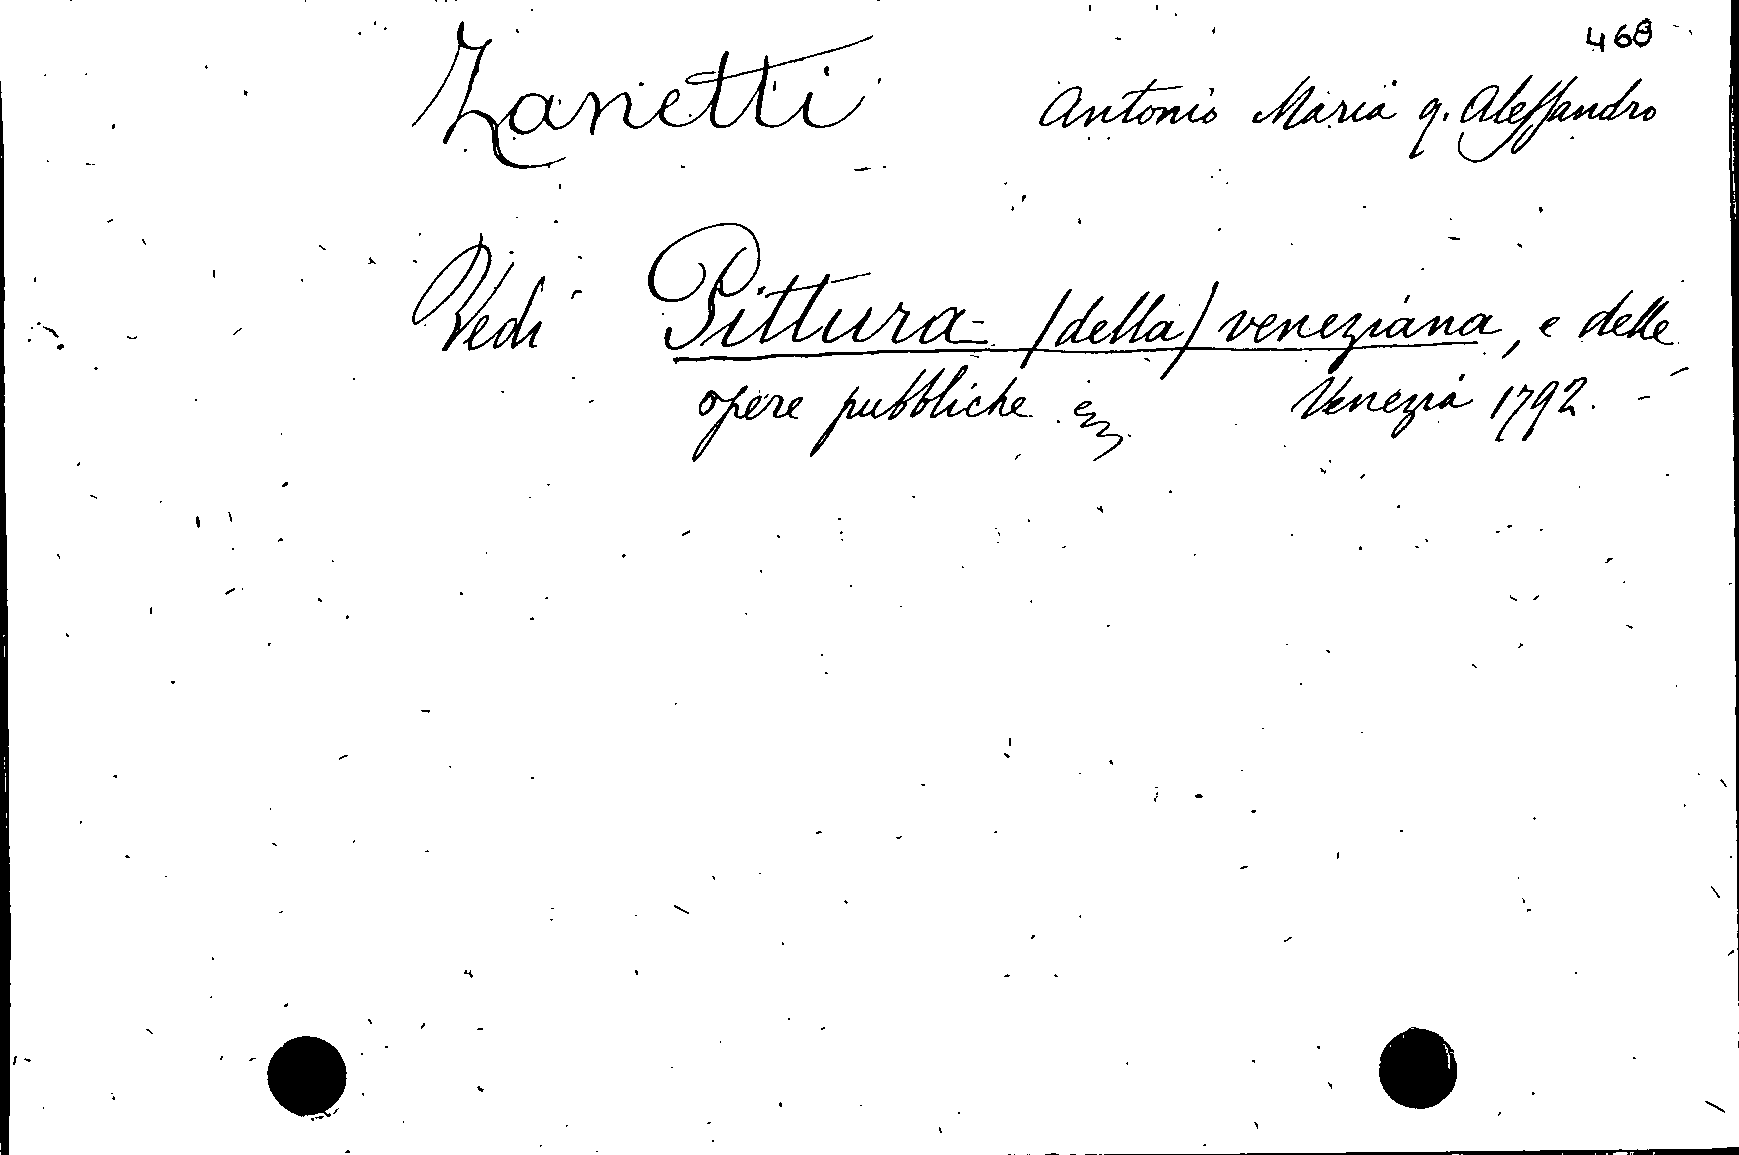 468
Zanetti Antonio Maria q. Alessandro
Vedi Pittura (della) veneziana, e delle
opere pubbliche Venezia 1792.